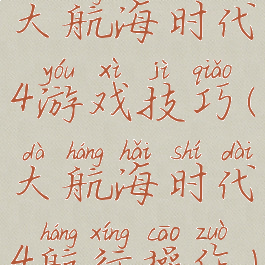 大航海时代
yóu xì jì qiǎo
4游戏技巧(
dà háng hǎi shí dài
大航海时代
háng xíng cāo zuò
4航行操作)